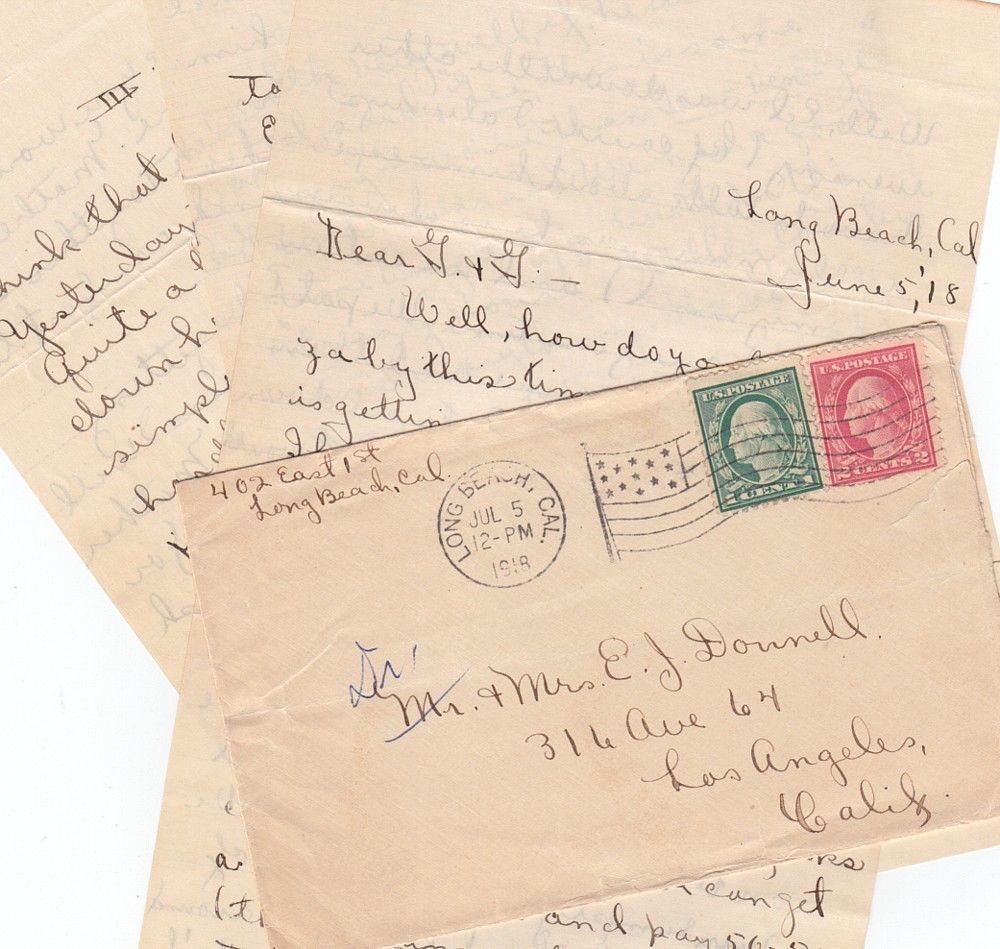 III
think that
Yesterday
quite a
down h
simpl
to
Long Beach, Cal
June 5, '18
Dear G. & G. —
Well, how do yo
za by this tim
is gettin
402 East 1st
Long Beach, Cal.
LONG BEACH, CAL.
JUL 5
12-PM
1918
U.S. POSTAGE
1 CENT 1
U.S. POSTAGE
2 CENTS 2
Dr.
Mr. & Mrs. E. J. Donnell.
316 Ave 64
Los Angeles,
Calif.
a
can get
and pay 50